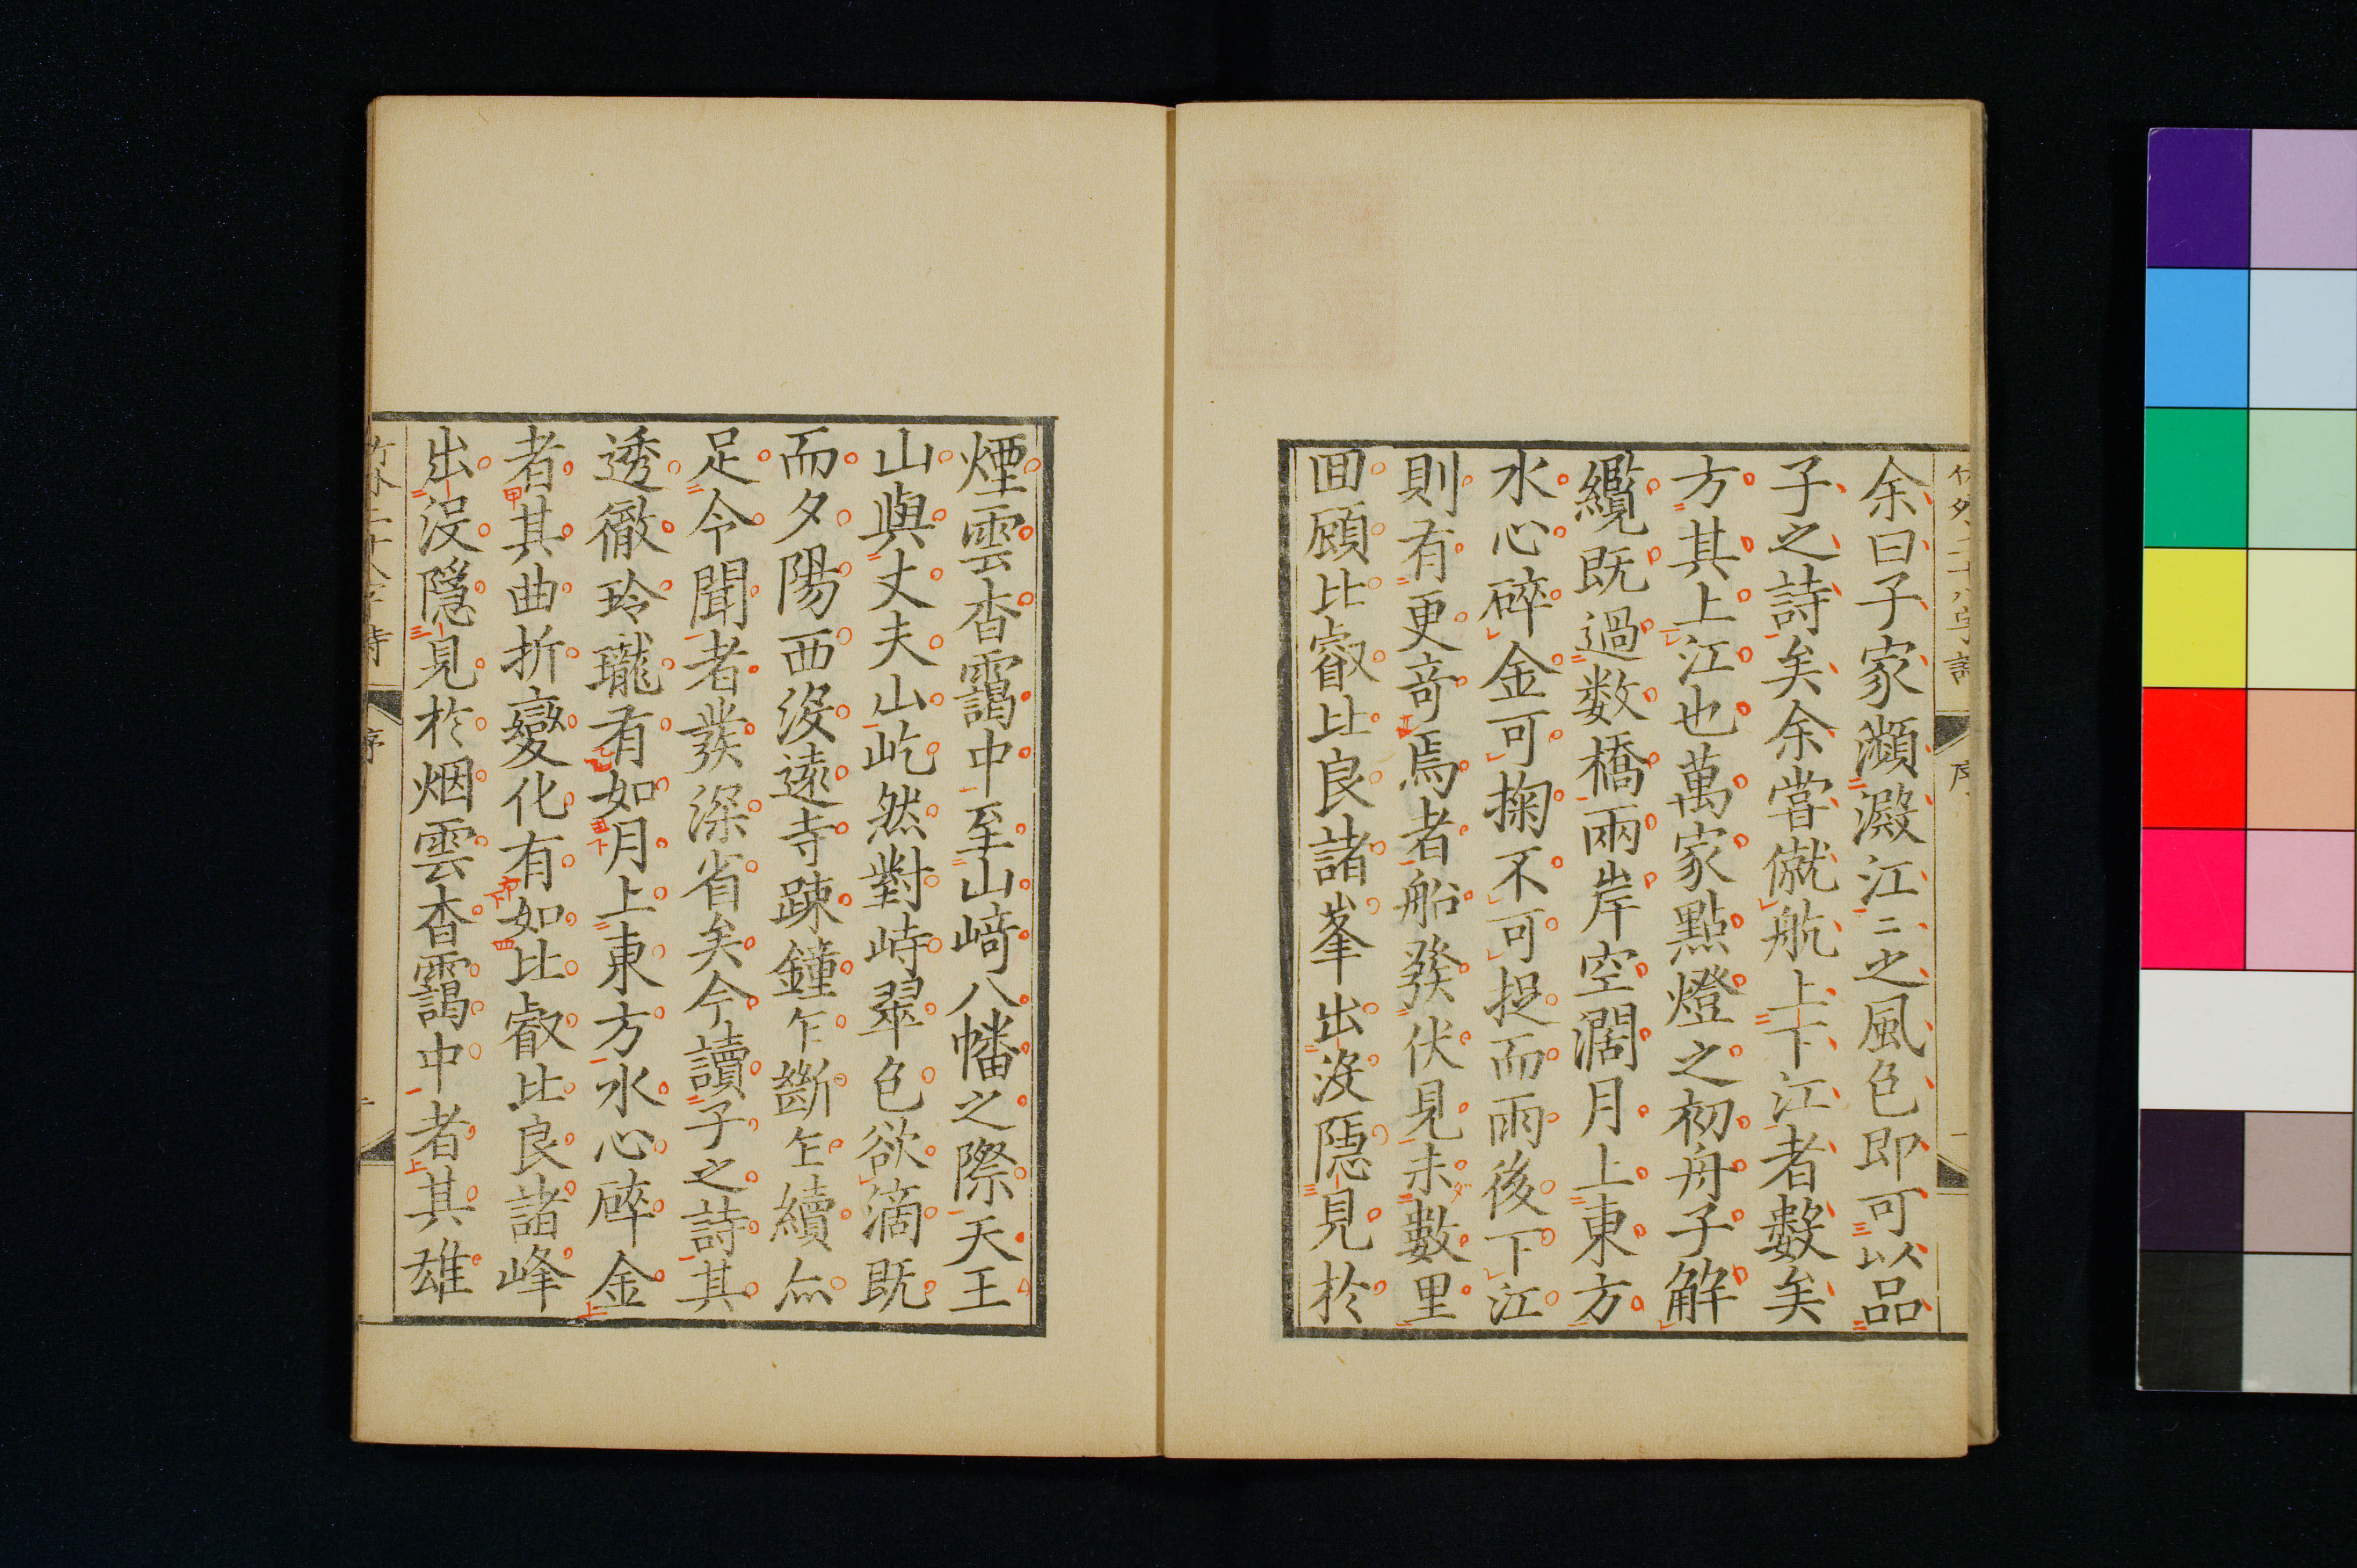 余曰子家瀕澱江江之風色即可以品
子之詩矣余嘗僦航上下江者數矣
方其上江也萬家點燈之初舟子解
纜既過数橋兩岸空濶月上東方
水心碎金可掬不可捉而雨後下江
則有更竒焉者船發伏見未數里
回顧比叡比良諸峯出沒隱見於
煙雲杳靄中至山﨑八幡之際天王
山與丈夫山屹然對峙翠色欲滴既
而夕陽西沒遠寺踈鐘乍斷乍續亦
足令聞者發深省矣今讀子之詩其
透徹玲瓏有如月上東方水心碎金
者其曲折變化有如比叡比良諸峰
出沒隱見於烟雲杳靄中者其雄
序
序